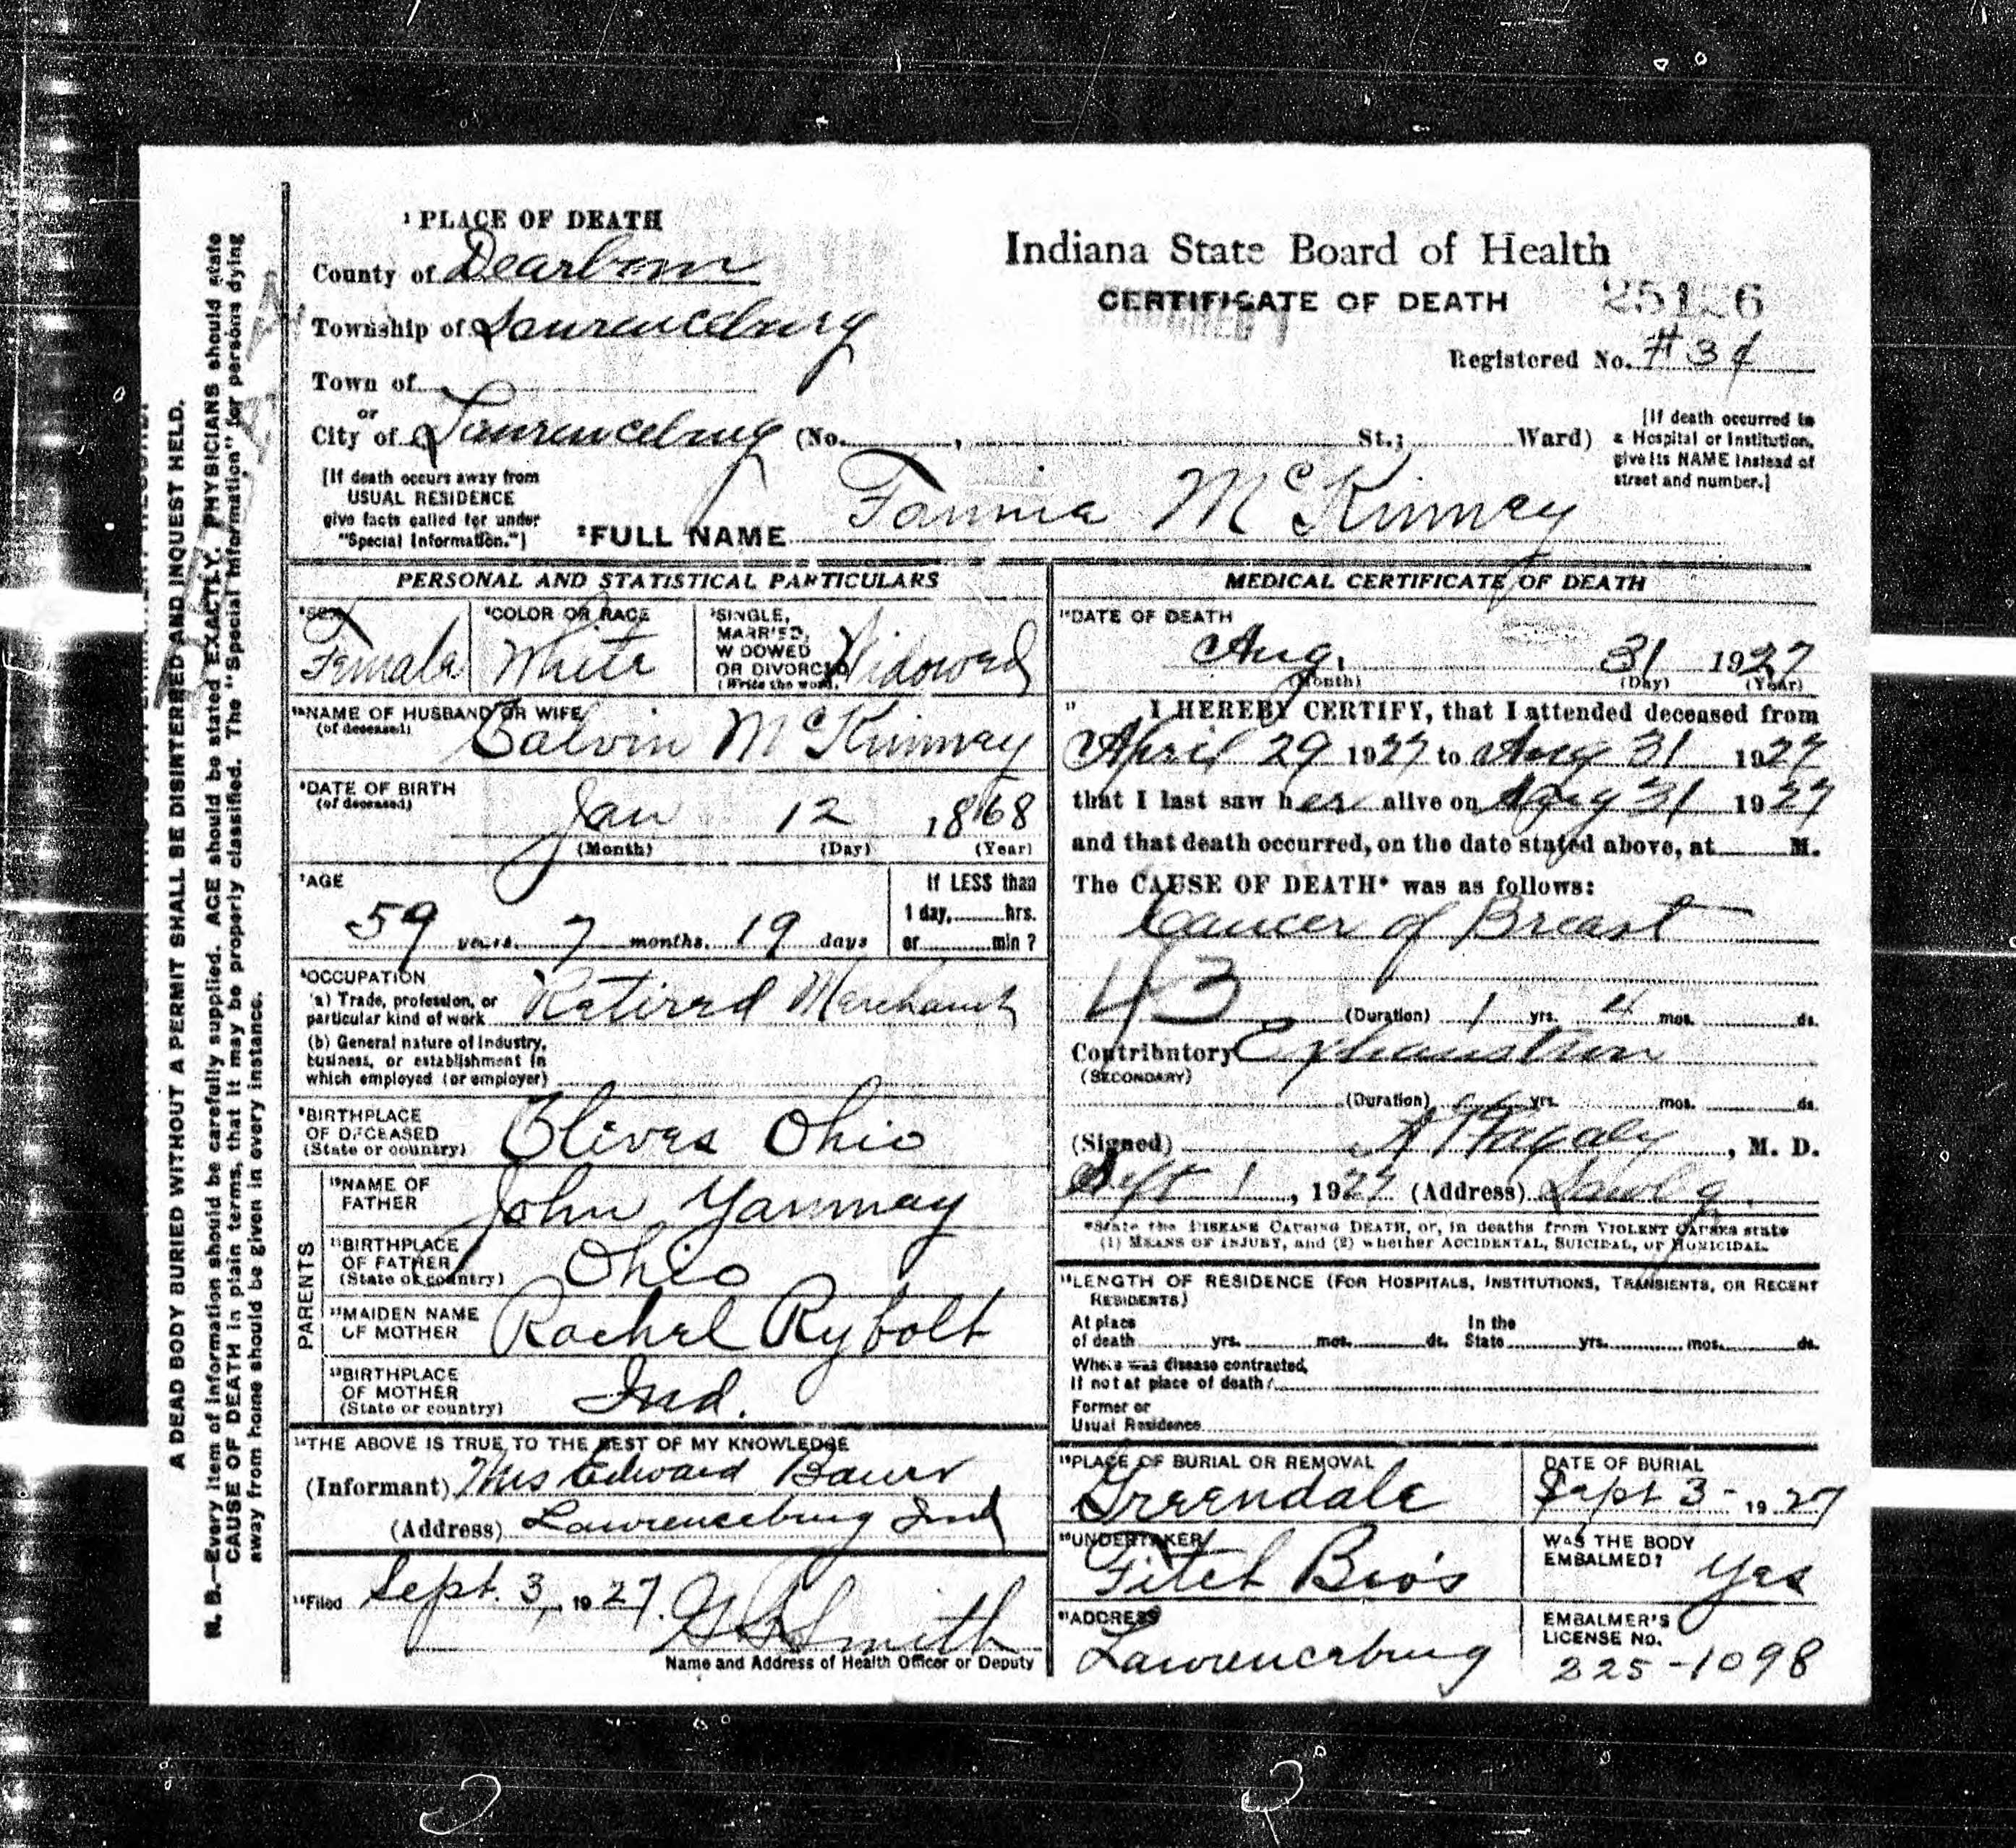 ¹ PLACE OF DEATH
County of Dearborn
Township of Lawrenceburg
Town of
or
City of Lawrenceburg (No. , St.; Ward)
[If death occurs away from
USUAL RESIDENCE
give facts called for under
"Special Information."]
Indiana State Board of Health
CERTIFICATE OF DEATH
Registered No. #34
[If death occurred in
a Hospital or Institution,
give its NAME instead of
street and number.]
²FULL NAME Fannie McKinney
PERSONAL AND STATISTICAL PARTICULARS
³SEX Female
⁴COLOR OR RACE White
⁵SINGLE,
MARRIED,
WIDOWED
OR DIVORCED
(Write the word) Widowed
NAME OF HUSBAND OR WIFE
(of deceased) Calvin McKinney
⁶DATE OF BIRTH
(of deceased)
Jan 12, 1868
(Month) (Day) (Year)
⁷AGE
59 years 7 months 19 days
If LESS than
1 day, hrs.
or min?
⁸OCCUPATION
(a) Trade, profession, or
particular kind of work Retired Merchant
(b) General nature of Industry,
business, or establishment in
which employed (or employer)
⁹BIRTHPLACE
OF DECEASED
(State or country) Cleves Ohio
PARENTS
¹⁰NAME OF
FATHER John
¹¹BIRTHPLACE
OF FATHER
(State or country) Ohio
¹²MAIDEN NAME
OF MOTHER Rachel Rybolt
¹³BIRTHPLACE
OF MOTHER
(State or country) Ind.
¹⁴THE ABOVE IS TRUE TO THE BEST OF MY KNOWLEDGE
(Informant) Mrs Edward Bauer
(Address) Lawrenceburg Ind
¹⁵Filed Sept. 3, 1927. Smith
Name and Address of Health Officer or Deputy
MEDICAL CERTIFICATE OF DEATH
DATE OF DEATH
Aug. 31 1927
(Month) (Day) (Year)
I HEREBY CERTIFY, that I attended deceased from
April 29 1927 to Aug 31 1927
that I last saw her alive on Aug 31 1927
and that death occurred, on the date stated above, at M.
The CAUSE OF DEATH* was as follows:
Cancer of Breast
43
(Duration) 1 yrs. 4 mos. ds.
Contributory Exhaustion
(SECONDARY)
(Duration) yrs. mos. ds.
(Signed) , M. D.
Sept 1, 1927 (Address)
*State the DISEASE CAUSING DEATH, or, in deaths from VIOLENT CAUSES state
(1) MEANS OF INJURY, and (2) whether ACCIDENTAL, SUICIDAL, or HOMICIDAL.
LENGTH OF RESIDENCE (FOR HOSPITALS, INSTITUTIONS, TRANSIENTS, OR RECENT
RESIDENTS)
At place
of death yrs. mos. ds.
In the
State yrs. mos. ds.
Where was disease contracted,
If not at place of death?
Former or
Usual Residence
¹⁹PLACE OF BURIAL OR REMOVAL
Greendale
DATE OF BURIAL
Sept 3- 1927
²⁰UNDERTAKER
Fitch Bro's
WAS THE BODY
EMBALMED? Yes
ADDRESS
Lawrenceburg
EMBALMER'S
LICENSE NO.
225-1098
A DEAD BODY BURIED WITHOUT A PERMIT SHALL BE DISINTERRED AND INQUEST HELD.
N. B.—Every item of information should be carefully supplied. AGE should be stated EXACTLY. PHYSICIANS should state
CAUSE OF DEATH in plain terms, that it may be properly classified. The "Special Information" for persons dying
away from home should be given in every instance.